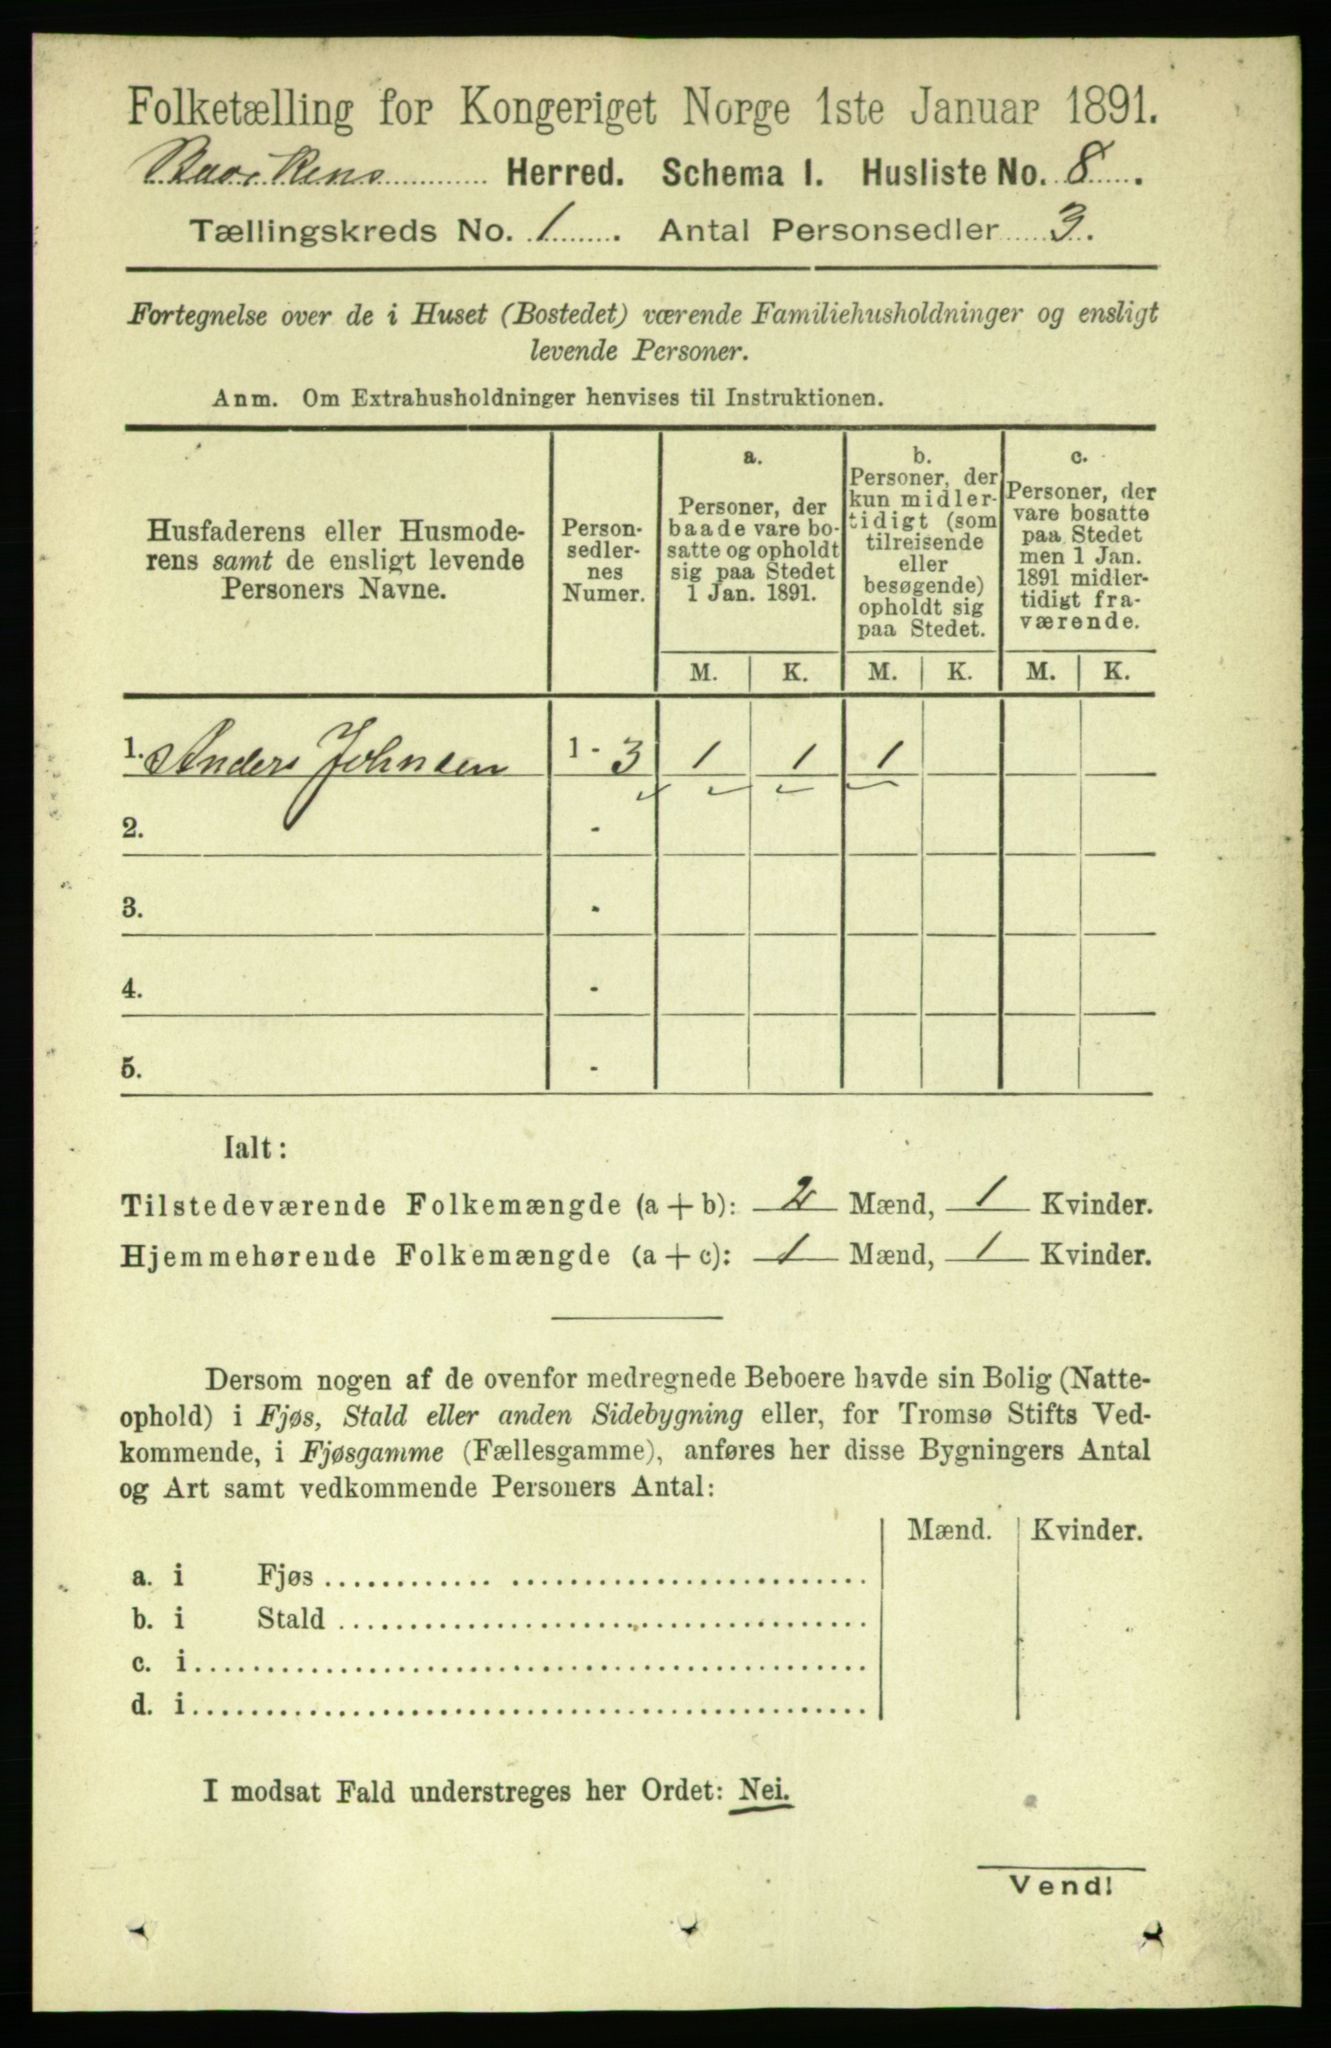 Folketælling for Kongeriget Norge 1ste Januar 1891.
Herred. Schema I. Husliste No. 8.
Tællingskreds No. 1. Antal Personsedler 3.
Fortegnelse over de i Huset (Bostedet) værende Familiehusholdninger og ensligt
levende Personer.
Anm. Om Extrahusholdninger henvises til Instruktionen.
Husfaderens eller Husmode-
rens samt de ensligt levende
Personers Navne.
Person-
sedler-
nes
Numer.
a.
Personer, der
baade vare bo-
satte og opholdt
sig paa Stedet
1 Jan. 1891.
b.
Personer, der
kun midler-
tidigt (som
tilreisende
eller
besøgende)
opholdt sig
paa Stedet.
c.
Personer, der
vare bosatte
paa Stedet
men 1 Jan.
1891 midler-
tidigt fra-
værende.
M. K. M. K. M. K.
1. Anders Johnsen 1 - 3 1 1 1
2. -
3. -
4. -
5. -
Ialt:
Tilstedeværende Folkemængde (a + b): 2 Mænd, 1 Kvinder.
Hjemmehørende Folkemængde (a + c): 1 Mænd, 1 Kvinder.
Dersom nogen af de ovenfor medregnede Beboere havde sin Bolig (Natte-
ophold) i Fjøs, Stald eller anden Sidebygning eller, for Tromsø Stifts Ved-
kommende, i Fjøsgamme (Fællesgamme), anføres her disse Bygningers Antal
og Art samt vedkommende Personers Antal:
Mænd. Kvinder.
a. i Fjøs
b. i Stald
c. i
d. i
I modsat Fald understreges her Ordet: Nei.
Vend!